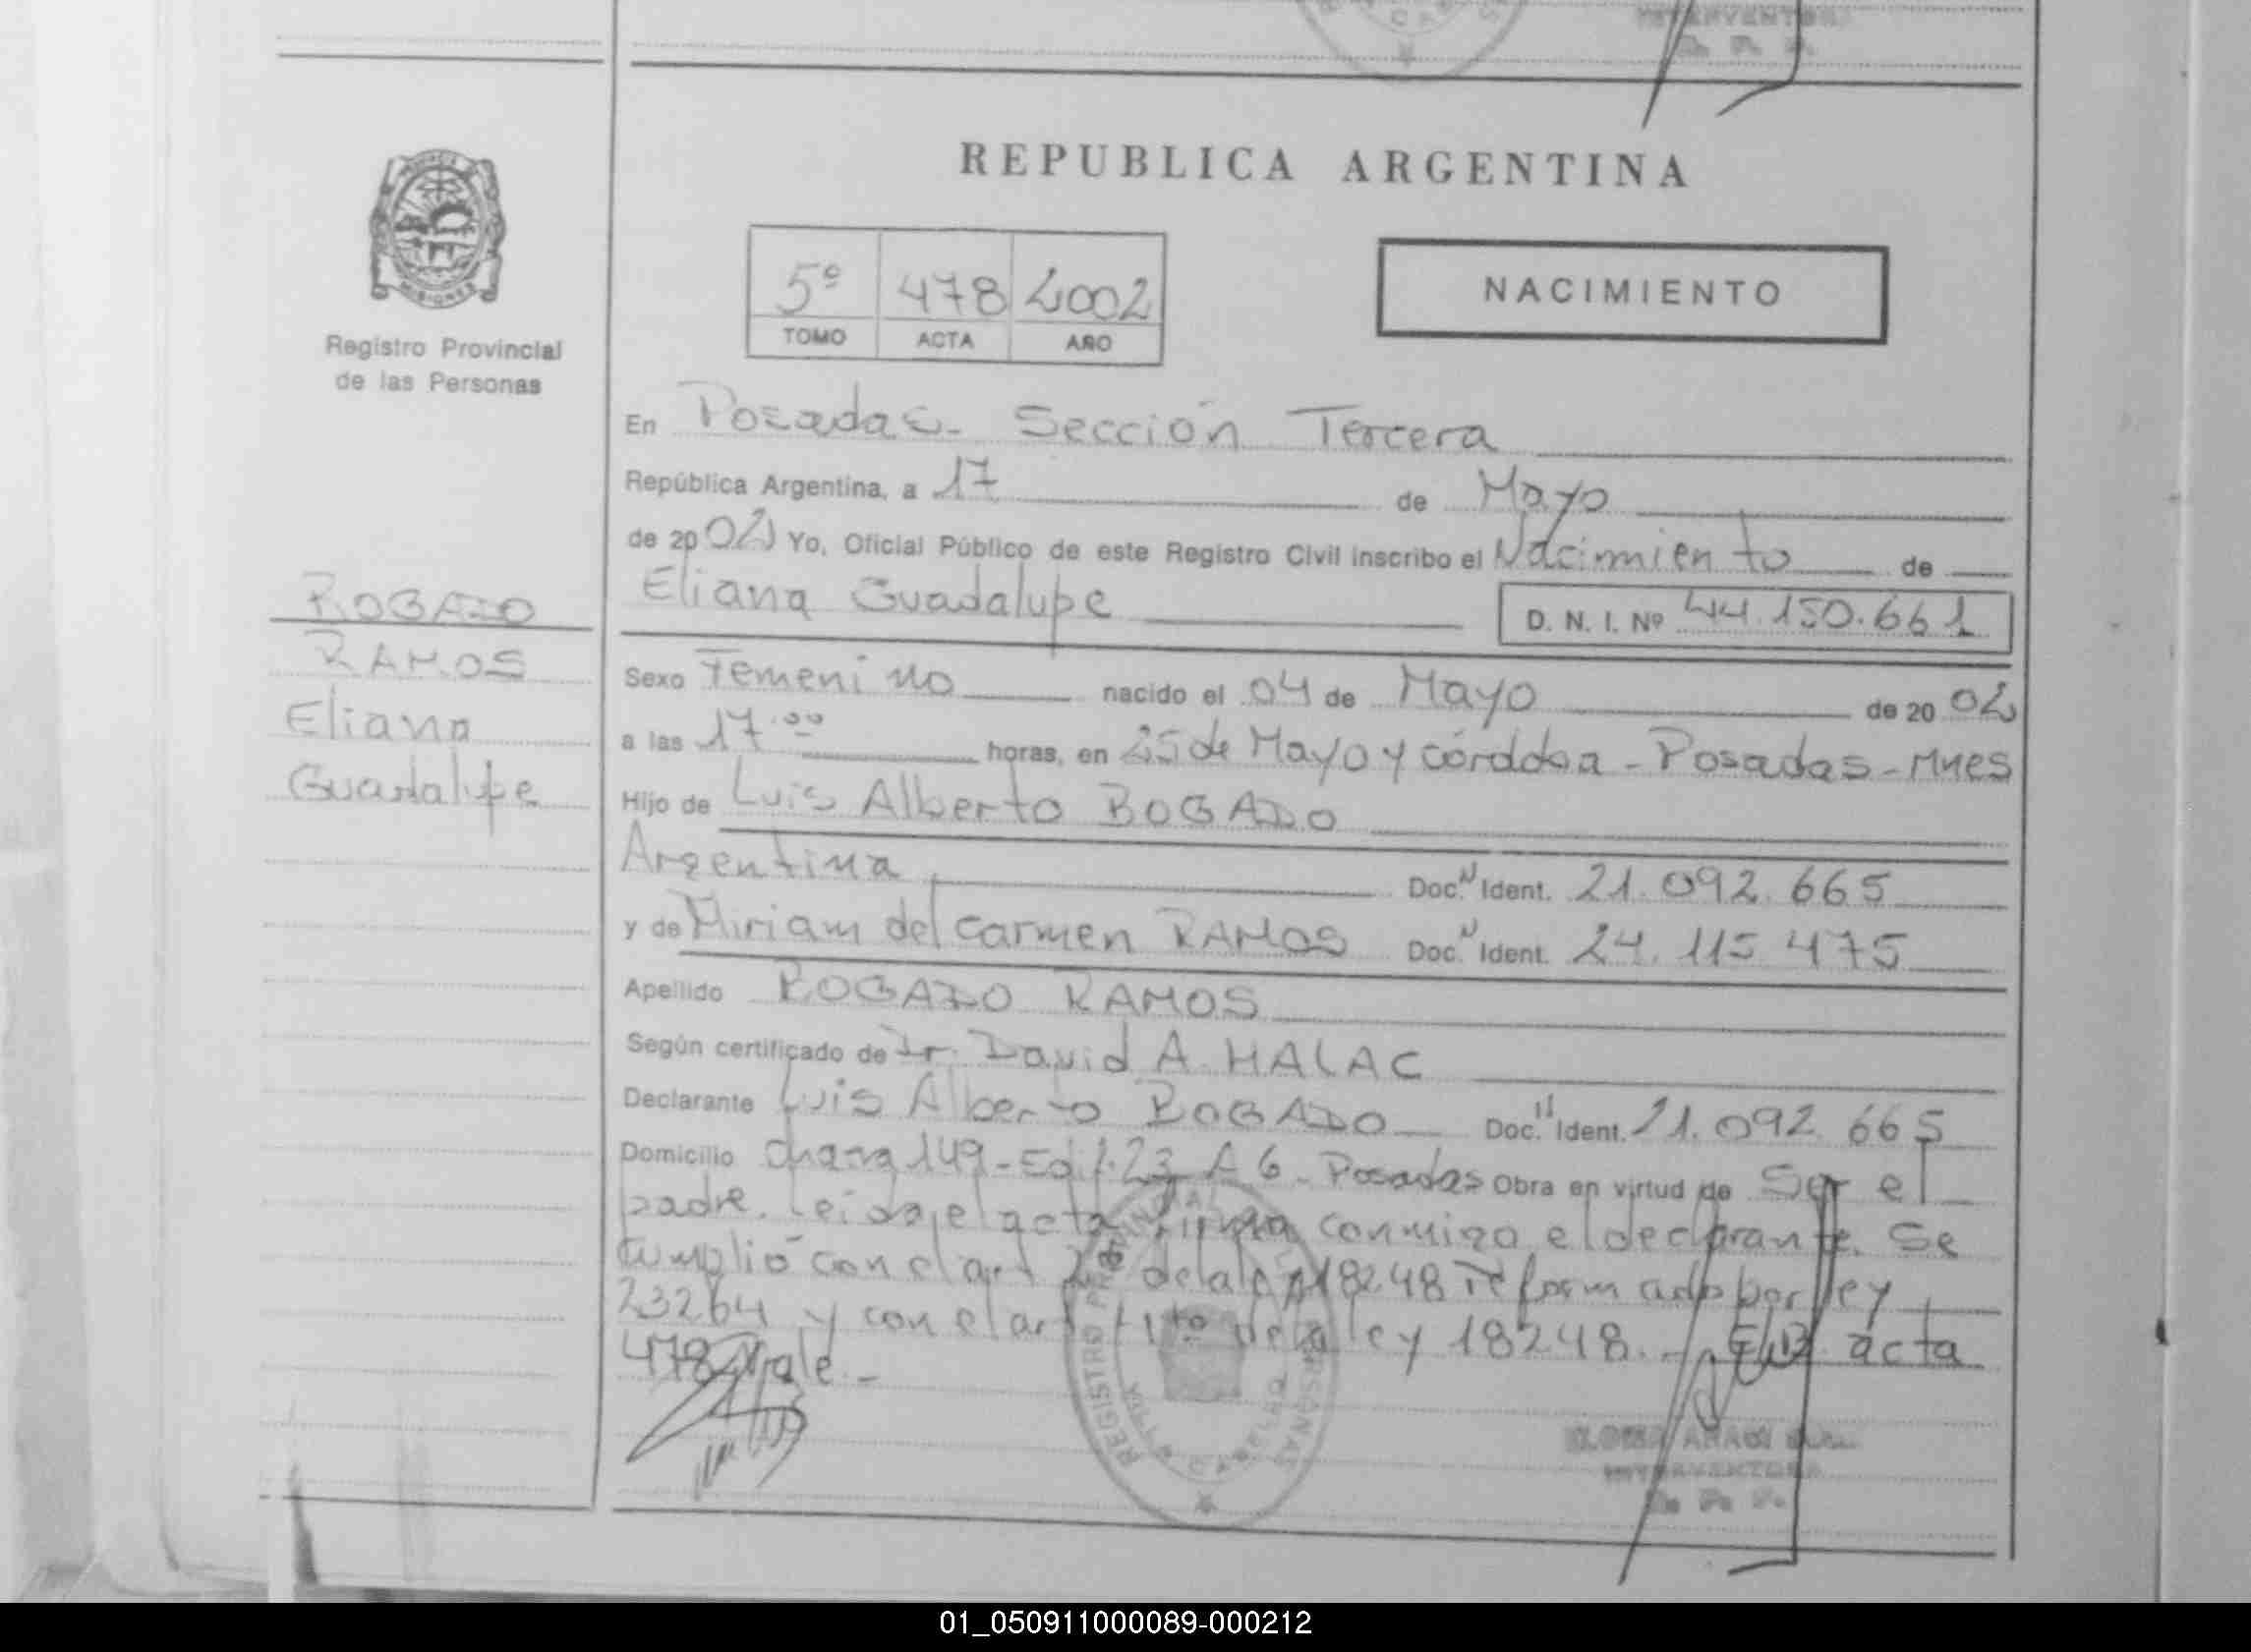 INTERVENTORA
REPUBLICA ARGENTINA
MISIONES
Registro Provincial
de las Personas
5º 478 2002
TOMO ACTA AÑO
NACIMIENTO
En Posadas - Sección Tercera
República Argentina, a 17 de Mayo
de 2002 Yo, Oficial Público de este Registro Civil inscribo el Nacimiento de
Eliana Guadalupe
D. N. I. Nº 44.150.661
BOGADO
RAMOS
Eliana
Guadalupe
Sexo Femenino nacido el 04 de Mayo de 2002
a las 17.00 horas, en 25 de Mayo y córdoba - Posadas - Mnes
Hijo de Luis Alberto BOGADO
Argentina Doc. Ident. 21.092.665
y de Miriam del Carmen RAMOS Doc. Ident. 24.115.475
Apellido BOGADO RAMOS
Según certificado de Dr. David A. HALAC
Declarante Luis Alberto BOGADO Doc. Ident. 21.092.665
Domicilio chacra 149 - Edif. 23 A 6 - Posadas Obra en virtud de Ser el
padre. Leida el acta firma conmigo el declarante. Se
cumplió con el art 2do de la ley 18248 reformado por ley
23264 y con el art de la ley 18248. - acta
478 Vale. -
REGISTRO PROVINCIAL DE LAS PERSONAS
INTERVENTORA
01_050911000089-000212